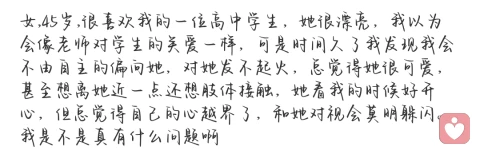 女.45岁.很喜欢我的一位高中学生，她很漂亮，我以为
会像老师对学生的关爱一样，可是时间久了我发现我会
不由自主的偏向她，对她发不起火，总觉得她很可爱，
甚至想离她近一点还想肢体接触，她看我的时候好开
心，但总觉得自己的心越界了，和她对视会莫明躲闪。
我是不是真有什么问题啊